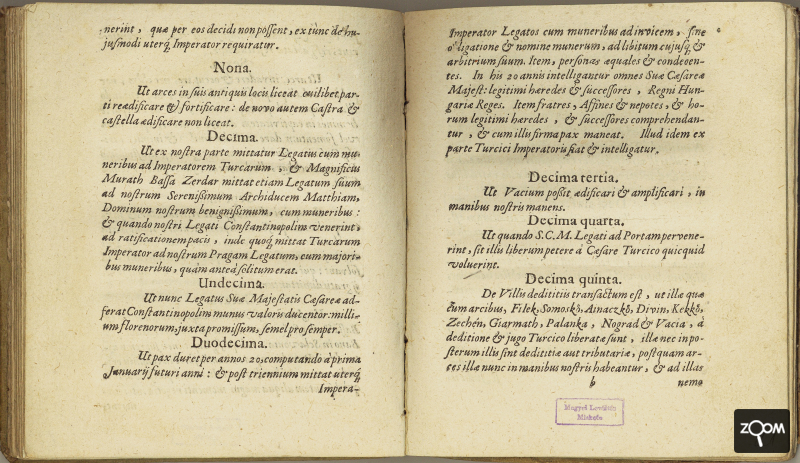 nerint, quæ per eos decidi non possent, ex tunc de hu-
jusmodi uterq; Imperator requiratur.
Nona.
Ut arces in suis antiquis locis liceat cuilibet par-
ti reædificare & fortificare: de novo autem Castra &
castella ædificare non liceat.
Decima.
Ut ex nostra parte mittatur Legatus cum mu-
neribus ad Imperatorem Turcarum, & Magnificus
Murath Bassa Zerdar mittat etiam Legatum suum
ad nostrum Serenissimum Archiducem Matthiam,
Dominum nostrum benignissimum, cum muneribus:
& quando nostri Legati Constantinopolim venerint,
ad ratificationem pacis, inde quoq; mittat Turcarum
Imperator ad nostrum Pragam Legatum, cum majori-
bus muneribus, quàm anteà solitum erat.
Undecima.
Ut nunc Legatus Suæ Majestatis Cæsareæ ad-
ferat Constantinopolim munus valoris ducentor: milli-
um florenorum, juxta promissum, semel pro semper.
Duodecima.
Ut pax duret per annos 20, computando à prima
Januarij futuri anni: & post triennium mittat uterq;
Impera-
Imperator Legatos cum muneribus ad invicem, sine
obligatione & nomine munerum, ad libitum cujusq; &
arbitrium suum. Item, personæ æquales & condecen-
tes. In his 20 annis intelligantur omnes Suæ Cæsareæ
Majest: legitimi hæredes & successores, Regni Hun-
gariæ Reges. Item fratres, Affines & nepotes, & ho-
rum legitimi hæredes, & successores comprehendan-
tur, & cum illis firma pax maneat. Illud idem ex
parte Turcici Imperatoris fiat & intelligatur.
Decima tertia.
Ut Vacium possit ædificari & amplificari, in
manibus nostris manens.
Decima quarta.
Ut quando S.C.M. Legati ad Portam pervene-
rint, sit illis liberum petere à Cæsare Turcico quicquid
voluerint.
Decima quinta.
De Villis dedititiis transactum est, ut illæ quæ
cum arcibus, Filek, Somoskô, Ainaczkô, Divin, Kekkô,
Zechén, Giarmath, Palanka, Nograd & Vacia, à
deditione & jugo Turcico liberatæ sunt, illæ nec in po-
sterum illis sint dedititiæ aut tributariæ, postquam ar-
ces illæ nunc in manibus nostris habeantur, & ad illas
b nemo
Megyei Levéltár
Miskolc
ZOOM